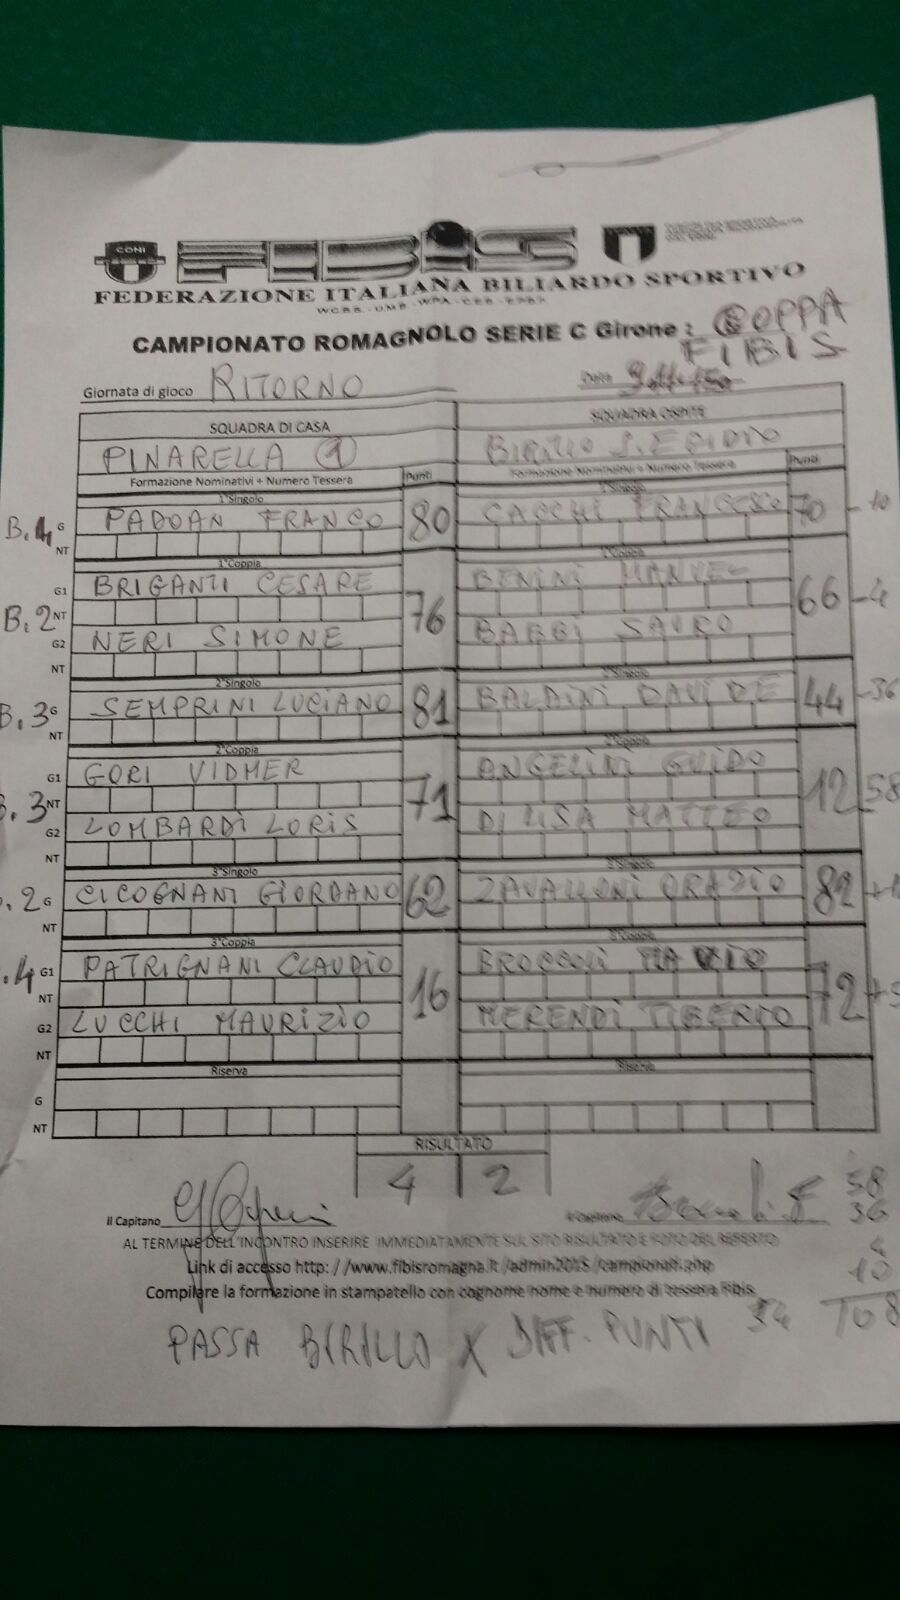 CONI
FIBiS
FEDERAZIONE ITALIANA BILIARDO SPORTIVO
CAMPIONATO ROMAGNOLO SERIE C Girone : COPPA
FIBIS
Giornata di gioco RITORNO Data
SQUADRA DI CASA SQUADRA OSPITE
PINARELLA 1 BIRILLO S. EGIDIO
Formazione Nominativi + Numero Tessera Punti Formazione Nominativi + Numero Tessera Punti
1°Singolo 1°Singolo
B.4 G PADOAN FRANCO 80 CACCHI FRANCESCO 70 -10
NT
1°Coppia 1°Coppia
G1 BRIGANTI CESARE BENINI MANUEL
B.2 NT 76 66 -4
G2 NERI SIMONE BABBI SAURO
NT
2°Singolo 2°Singolo
B.3 G SEMPRINI LUCIANO 81 BALDINI DAVIDE 44 -36
NT
2°Coppia 2°Coppia
G1 GORI VIDMER ANGELINI GUIDO
.3 NT 71 12 58
G2 LOMBARDI LORIS DI LISA MATTEO
NT
3°Singolo 3°Singolo
.2 G CICOGNANI GIORDANO 62 ZAVALLONI ORAZIO 82
NT
3°Coppia 3°Coppia
.4 G1 PATRIGNANI CLAUDIO BROCCOLI
NT 16 72
G2 LUCCHI MAURIZIO MERENDI TIBERIO
NT
Riserva Riserva
G
NT
RISULTATO
4 2
58
Il Capitano Il Capitano 36
AL TERMINE DELL'INCONTRO INSERIRE IMMEDIATAMENTE SUL SITO RISULTATO E FOTO DEL REFERTO 4
Link di accesso http: / /www.fibisromagna.it /admin2015 /campionati.php 10
Compilare la formazione in stampatello con cognome nome e numero di tessera Fibis
PASSA BIRILLO X DIFF. PUNTI 34 108